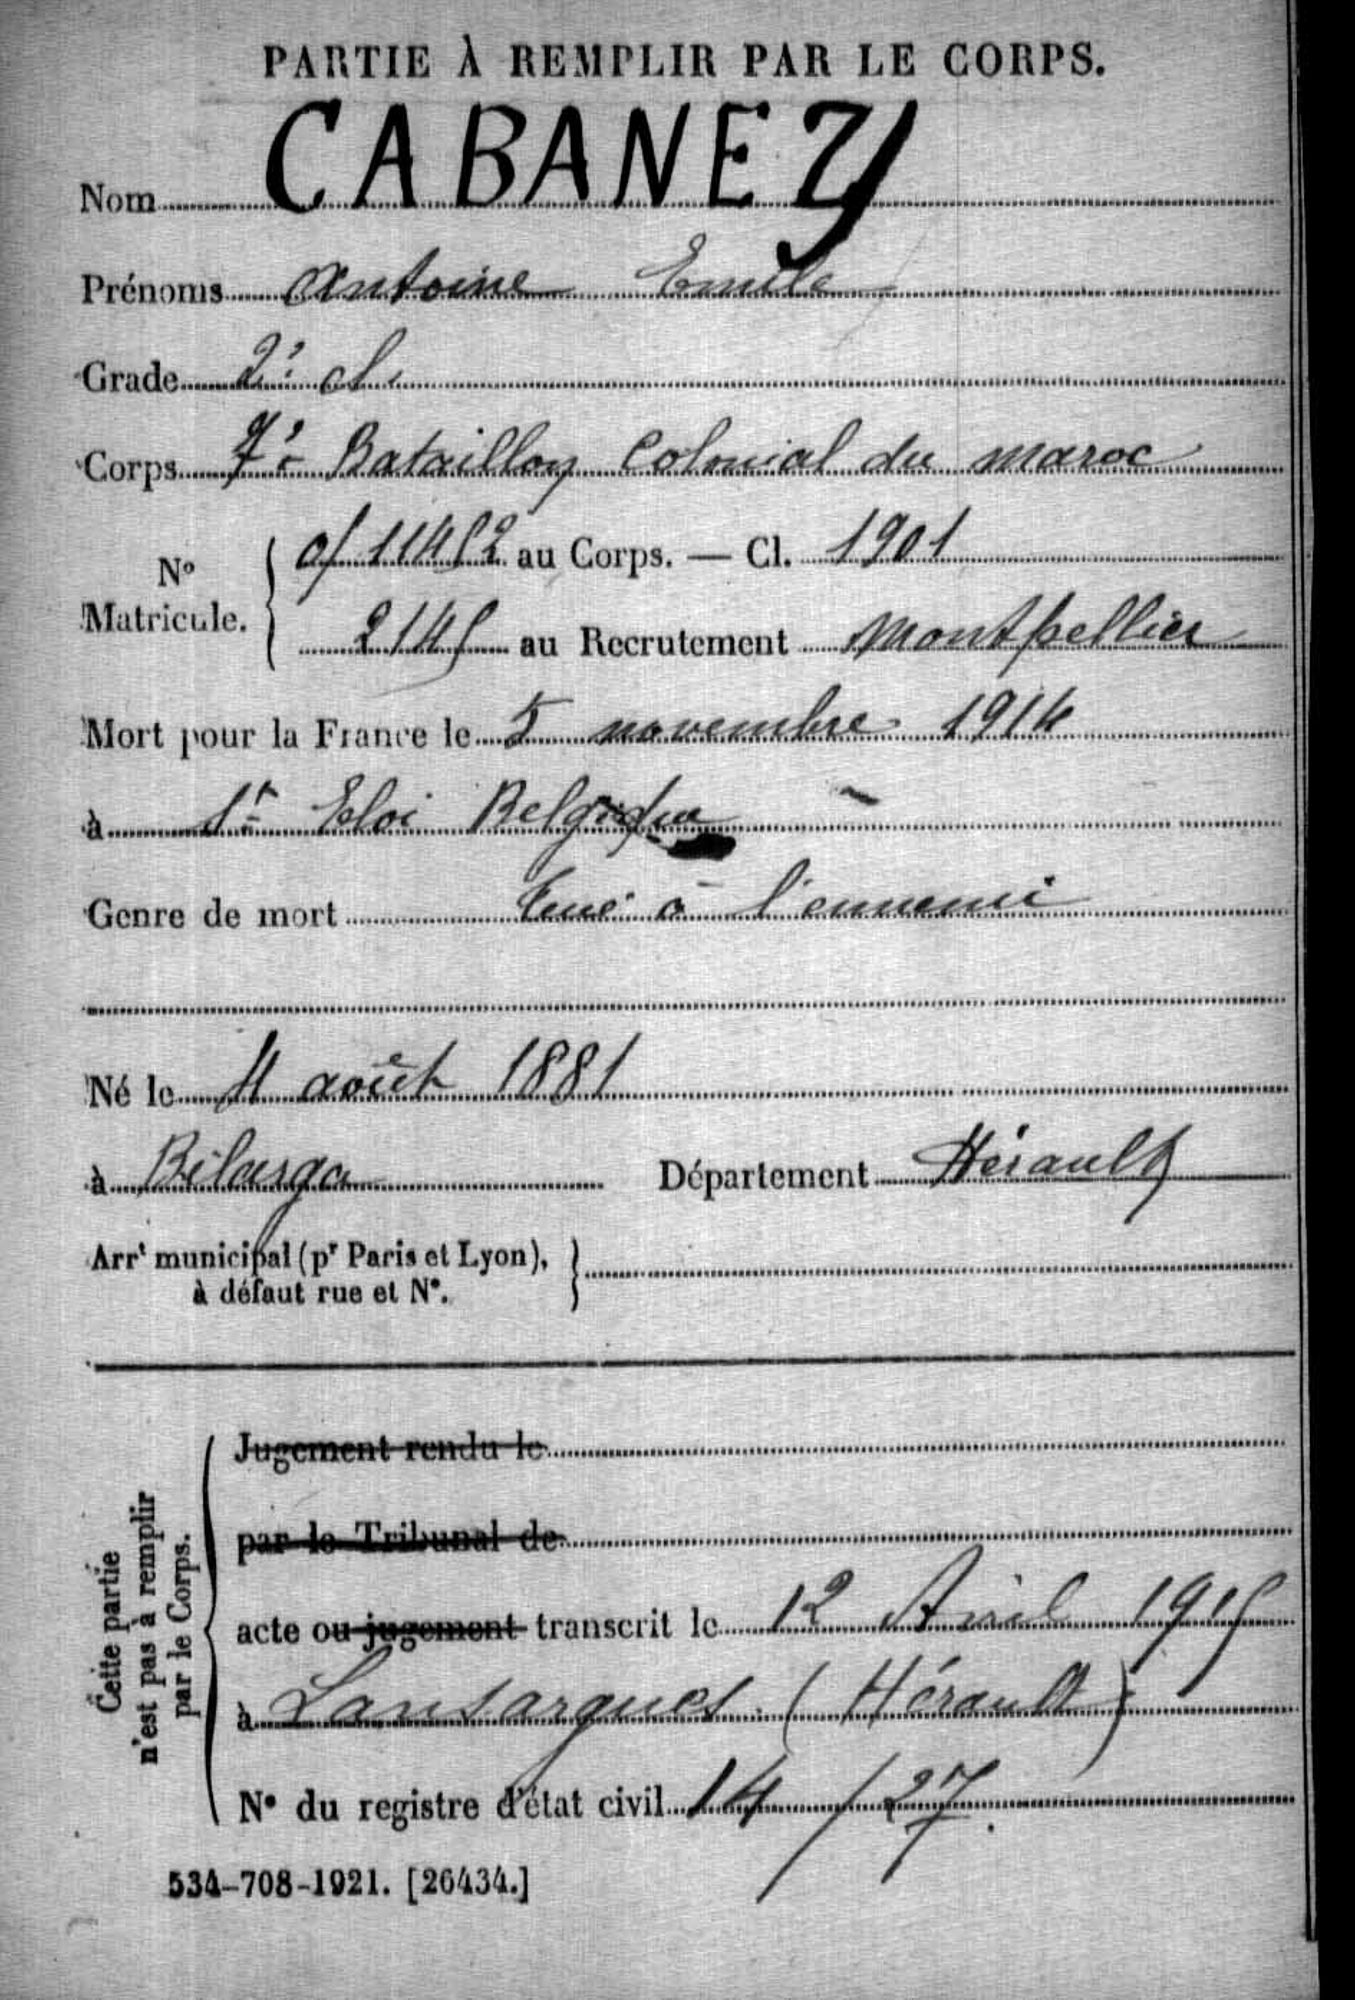 PARTIE À REMPLIR PAR LE CORPS.
Nom CABANEZY
Prénoms Antoine Emile
Grade 2e cl.
Corps 7e Bataillon Colonial du maroc
No Matricule. { o/11452 au Corps. — Cl. 1901
2145 au Recrutement Montpellier
Mort pour la France le 5 novembre 1914
à St Eloi Belgique
Genre de mort tué à l'ennemi
Né le 4 août 1881
à Bélarga Département Hérault
Arrt municipal (pr Paris et Lyon), à défaut rue et No. }
Cette partie n'est pas à remplir par le Corps.
Jugement rendu le
par le Tribunal de
acte ou jugement transcrit le 12 Avril 1915
à Lansargues (Hérault)
No du registre d'état civil 14 / 27.
534-708-1921. [26434.]